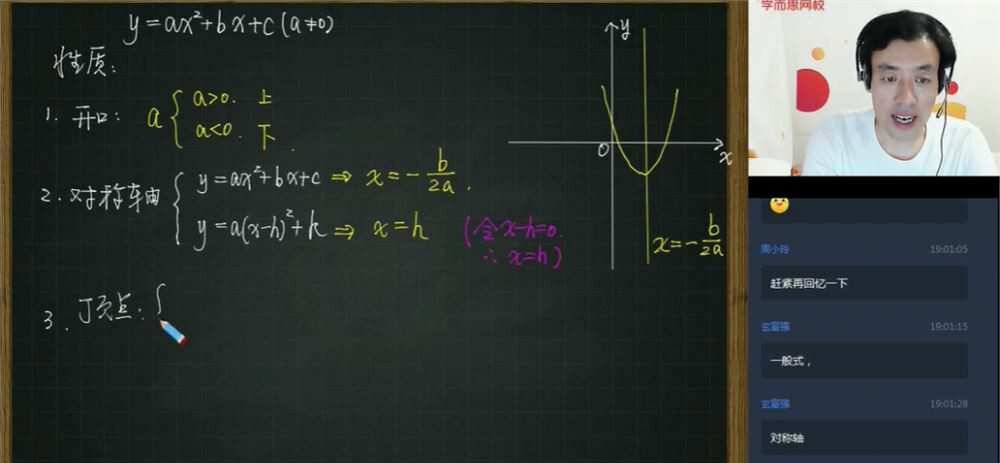 y=ax²+bx+c(a≠0)
性质:
1. 开口: a { a>0. 上
a<0. 下
2. 对称轴 { y=ax²+bx+c ⇒ x=-b/2a.
y=a(x-h)²+k ⇒ x=h (令x-h=0.
∴ x=h)
3. 顶点: {
y
0
x
x=-b/2a
学而思网校
周小玲 19:01:05
赶紧再回忆一下
19:01:15
一般式，
19:01:28
对称轴